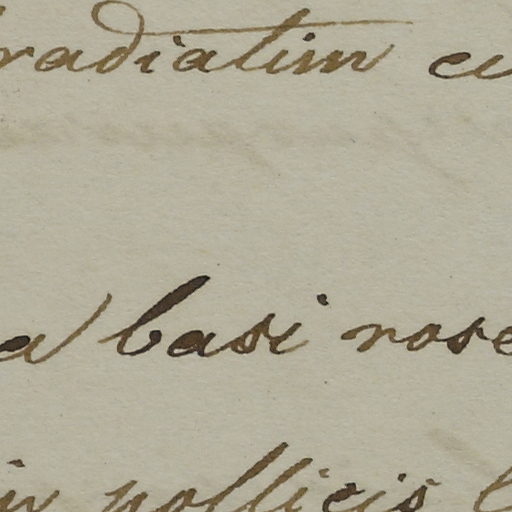 radiatim
basi rose
pollicis